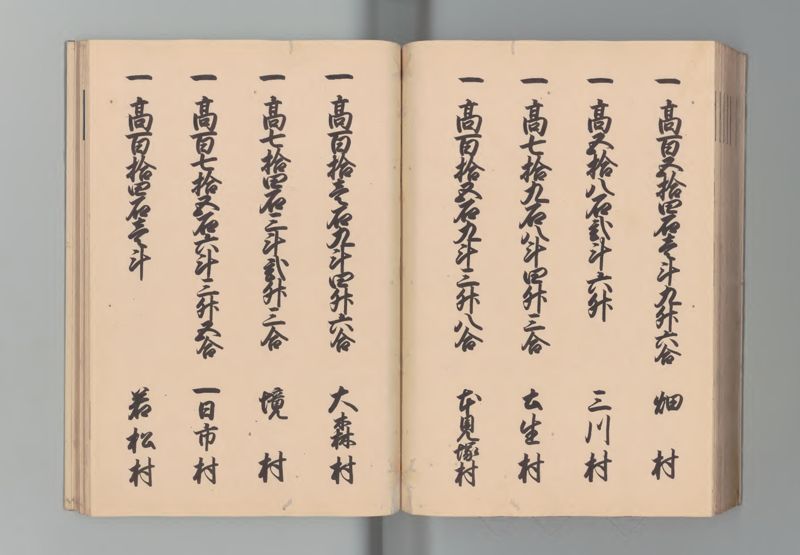 一 高百五拾四石壱斗九升六合 畑村
一 高五拾八石弐斗六升 三川村
一 高七拾九石八斗四升三合 土生村
一 高百拾五石九斗三升八合 本見塚村
一 高百拾壱石九斗四升六合 大森村
一 高七拾四石三斗弐升三合 境村
一 高百七拾五石六斗三升五合 一日市村
一 高百拾四石壱斗 若松村